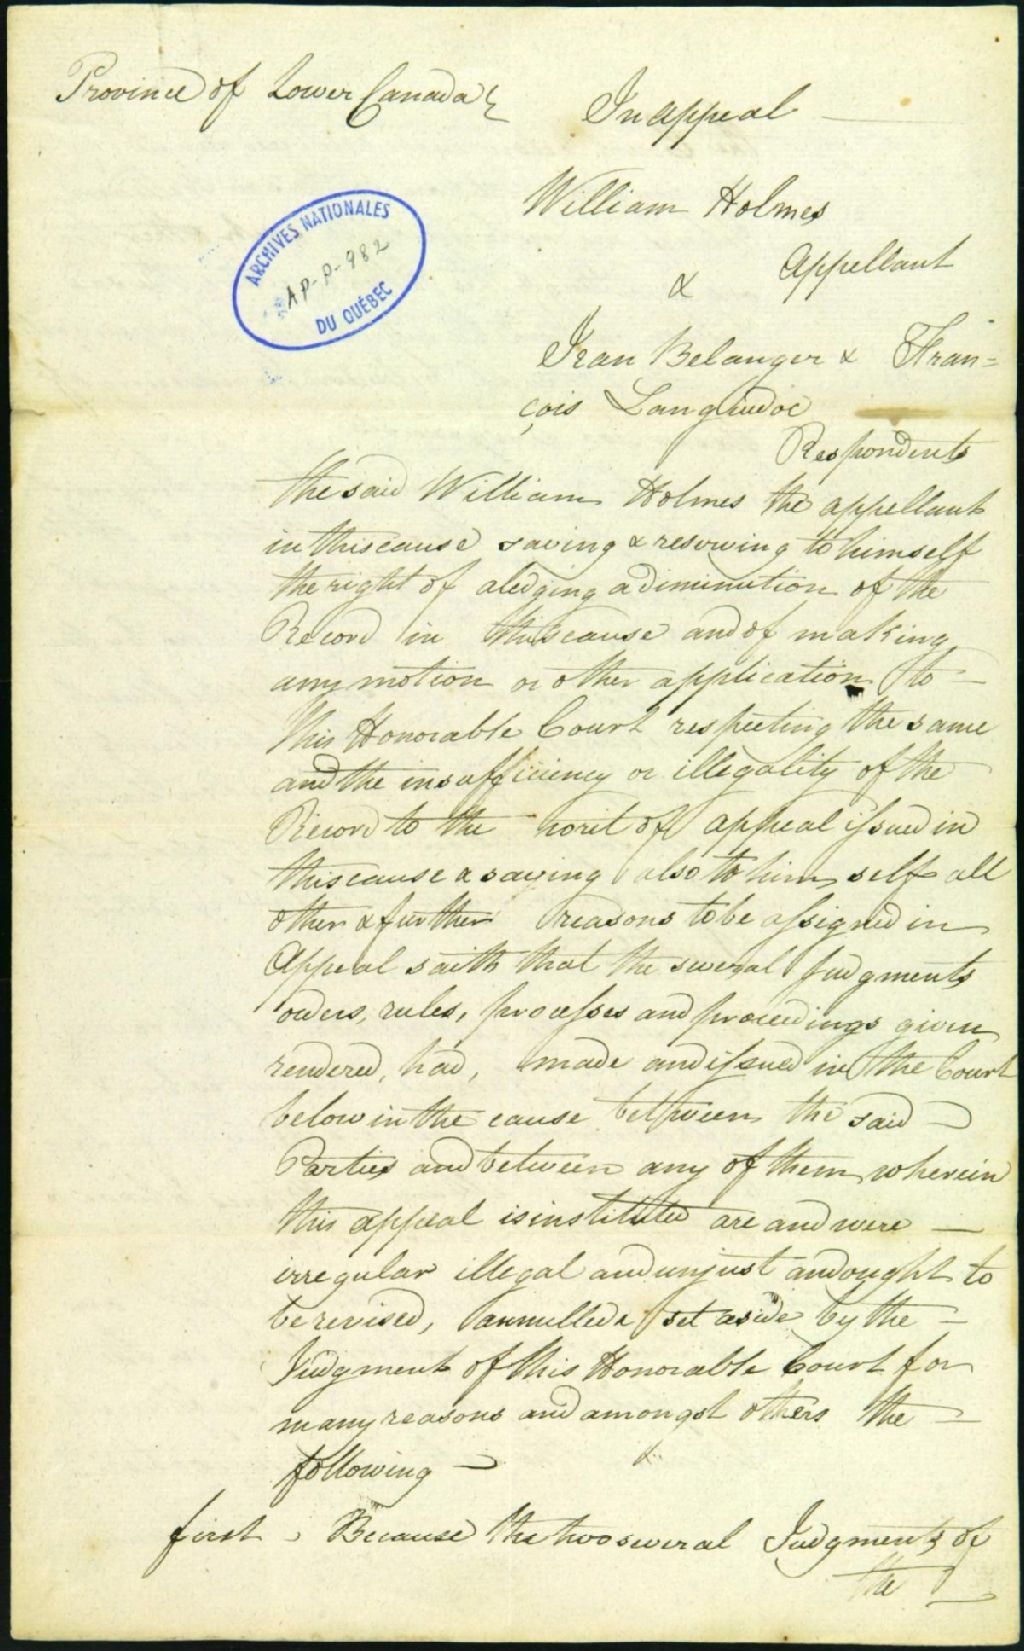 Province of Lower Canada
In appeal
William Holmes
Appellant
&
Jean Belanger & Fran=
çois Languedoc
Respondents
ARCHIVES NATIONALES
AP-P-982
DU QUÉBEC
the said William Holmes the appellant
in this cause saving & reserving to himself
the right of aledging a diminution of the
Record in this cause and of making
any motion or other application to
this Honorable Court respecting the same
and the insufficiency or illegality of the
Record to the writ of appeal issued in
this cause & saving also to him self all
other & further reasons to be assigned in
Appeal saith that the several Judgments
orders, rules, processes and proceedings given
rendered, had, made and issued in the Court
below in the cause between the said
Parties and between any of them wherein
this appeal is instituted are and were
irregular illegal and unjust and ought to
be revised, annulled & set aside by the
Judgment of this Honorable Court for
many reasons and amongst others the
following
first, Because the two several Judgments of
the